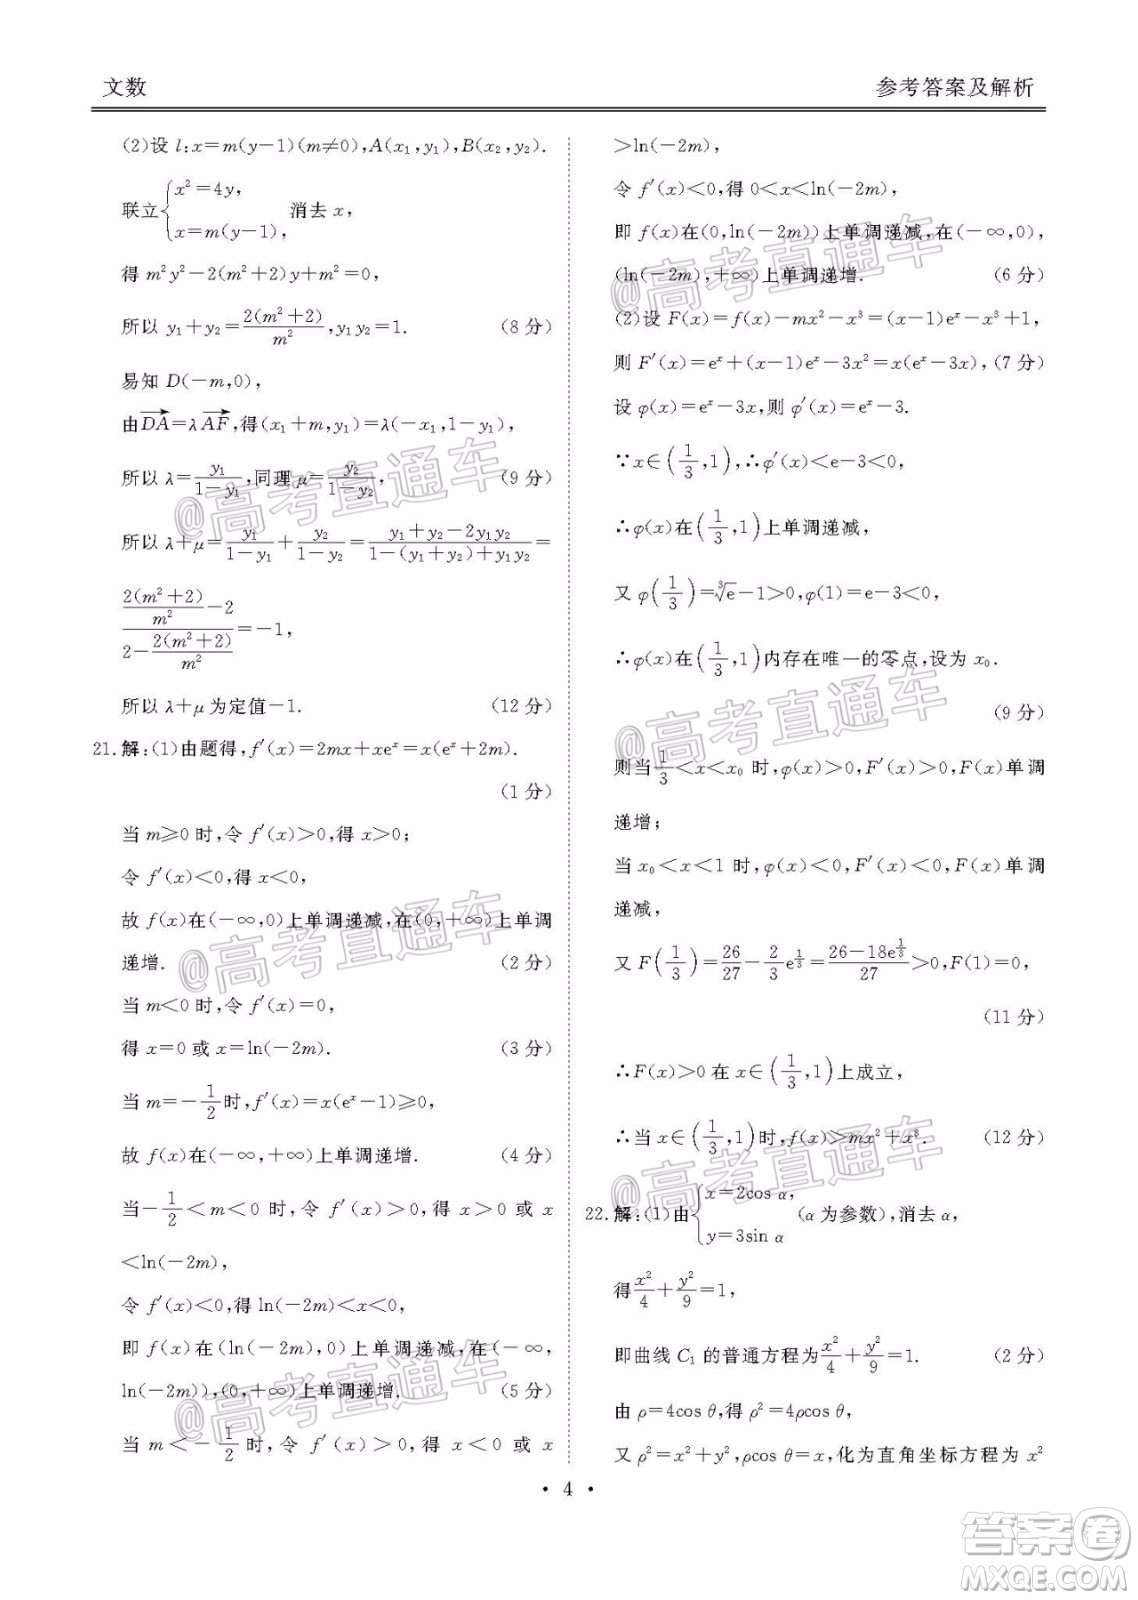 文数
参考答案及解析
(2)设 l:x=m(y-1)(m≠0),A(x₁,y₁),B(x₂,y₂).
联立{x²=4y, x=m(y-1), 消去 x,
得 m²y²-2(m²+2)y+m²=0,
所以 y₁+y₂=2(m²+2)/m²,y₁y₂=1. (8 分)
易知 D(-m,0),
由DA=λAF,得(x₁+m,y₁)=λ(-x₁,1-y₁),
所以 λ=y₁/(1-y₁),同理 μ=y₂/(1-y₂), (9 分)
所以 λ+μ=y₁/(1-y₁)+y₂/(1-y₂)=(y₁+y₂-2y₁y₂)/(1-(y₁+y₂)+y₁y₂)=
(2(m²+2)/m²-2)/(2-2(m²+2)/m²)=-1,
所以 λ+μ 为定值-1. (12 分)
21.解:(1)由题得,f′(x)=2mx+xeˣ=x(eˣ+2m).
(1 分)
当 m≥0 时,令 f′(x)>0,得 x>0;
令 f′(x)<0,得 x<0,
故 f(x)在(-∞,0)上单调递减,在(0,+∞)上单调
递增. (2 分)
当 m<0 时,令 f′(x)=0,
得 x=0 或 x=ln(-2m). (3 分)
当 m=-1/2时,f′(x)=x(eˣ-1)≥0,
故 f(x)在(-∞,+∞)上单调递增. (4 分)
当-1/2<m<0 时,令 f′(x)>0,得 x>0 或 x
<ln(-2m),
令 f′(x)<0,得 ln(-2m)<x<0,
即 f(x)在(ln(-2m),0)上单调递减,在(-∞,
ln(-2m)),(0,+∞)上单调递增. (5 分)
当 m<-1/2 时,令 f′(x)>0,得 x<0 或 x
>ln(-2m),
令 f′(x)<0,得 0<x<ln(-2m),
即 f(x)在(0,ln(-2m))上单调递减,在(-∞,0),
(ln(-2m),+∞)上单调递增. (6 分)
(2)设 F(x)=f(x)-mx²-x³=(x-1)eˣ-x³+1,
则 F′(x)=eˣ+(x-1)eˣ-3x²=x(eˣ-3x),(7 分)
设 φ(x)=eˣ-3x,则 φ′(x)=eˣ-3.
∵x∈(1/3,1),∴φ′(x)<e-3<0,
∴φ(x)在(1/3,1)上单调递减,
又 φ(1/3)=∛e-1>0,φ(1)=e-3<0,
∴φ(x)在(1/3,1)内存在唯一的零点,设为 x₀.
(9 分)
则当1/3<x<x₀ 时,φ(x)>0,F′(x)>0,F(x)单调
递增;
当 x₀<x<1 时,φ(x)<0,F′(x)<0,F(x)单调
递减,
又 F(1/3)=26/27-2/3e^(1/3)=(26-18e^(1/3))/27>0,F(1)=0,
(11 分)
∴F(x)>0 在 x∈(1/3,1)上成立,
∴当 x∈(1/3,1)时,f(x)>mx²+x³. (12 分)
22.解:(1)由{x=2cos α, y=3sin α (α 为参数),消去 α,
得x²/4+y²/9=1,
即曲线 C₁ 的普通方程为x²/4+y²/9=1. (2 分)
由 ρ=4cos θ,得 ρ²=4ρcos θ,
又 ρ²=x²+y²,ρcos θ=x,化为直角坐标方程为 x²
• 4 •
@高考直通车
@高考直通车
@高考直通车
@高考直通车
@高考直通车
@高考直通车
@高考直通车
答案卷
MXQE.COM